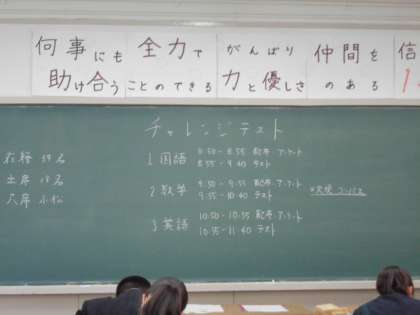 何事にも 全力で がんばり 仲間を 信
助け合うことのできる 力と優しさ のある 1
チャレンジテスト
在籍 39名
出席 18名
欠席 小松
1 国語 8:50-8:55 配布 アンケート
8:55-9:40 テスト
2 数学 9:50-9:55 配布 アンケート
9:55-10:40 テスト
コンパス
3 英語 10:50-10:55 配布 アンケート
10:55-11:40 テスト